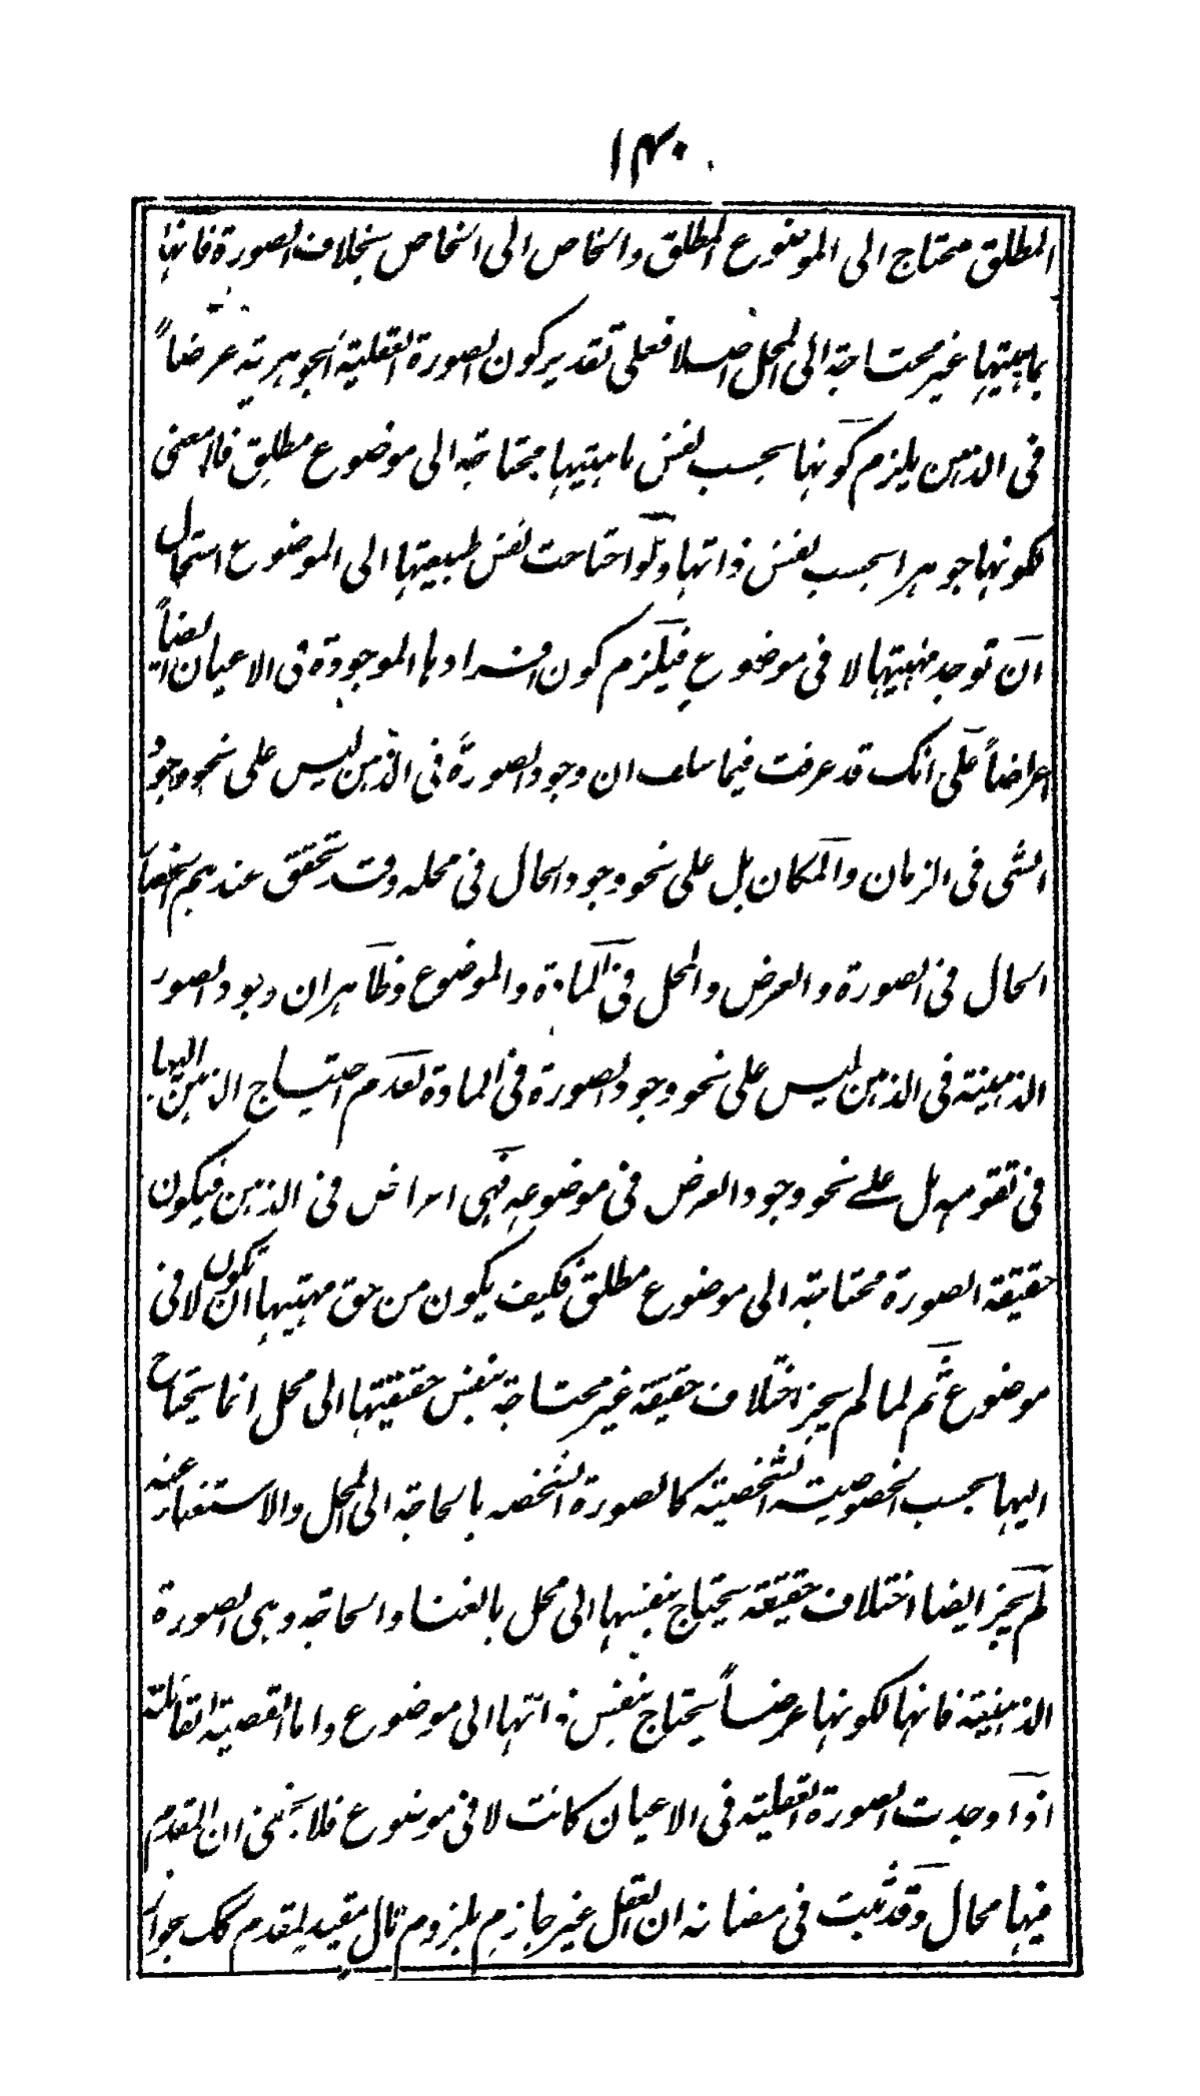 ۱۴۰
المطلق محتاج الى الموضوع المطلق والخاص الى الخاص بخلاف الصورة فانها
بماهيتها غير محتاجة الى المحل اصلا فعلى تقدير كون الصورة العقلية الجوهرية عرضاً
فى الذهن يلزم كونها بحسب نفس ماهيتها محتاجة الى موضوع مطلق فلا معنى
لكونها جوهرا بحسب نفس ذاتها ولو احتاجت نفس طبيعتها الى الموضوع استحال
ان توجد مهيتها لا فى موضوع فيلزم كون افرادها الموجودة فى الاعيان ايضاً
اعراضاً على انك قد عرفت فيما سلف ان وجود الصورة فى الذهن ليس على نحو وجود
الشى فى الزمان والمكان بل على نحو وجود الحال فى محله وقد تحقق عندهم انحصار
الحال فى الصورة والعرض والمحل فى المادة والموضوع وظاهر ان وجود الصور
الذهنية فى الذهن ليس على نحو وجود الصورة فى المادة لعدم احتياج الذهن اليها
فى تقومه بل على نحو وجود العرض فى موضوعه فهى اعراض فى الذهن فيكون
حقيقة الصورة محتاجة الى موضوع مطلق فكيف يكون من حق مهيتها ان تكون لا فى
موضوع ثم لما لم يجز اختلاف حقيقة غير محتاجة بنفس حقيقتها الى محل انما يحتاج
اليها بحسب الخصوصية الشخصية كالصورة الشخصه بالحاجة الى المحل والاستغناء عنه
لم يجز ايضا اختلاف حقيقة يحتاج بنفسها الى محل بالغناء والحاجة وهى الصورة
الذهنية فانها لكونها عرضاً يحتاج بنفس ذاتها الى موضوع واما القضية القائلة
اذا وجدت الصورة العقلية فى الاعيان كانت لا فى موضوع فلا يخفى ان المقدم
فيها محال وقد ثبت فى مضانه ان العقل غير جازم بلزوم تال مقيد لمقدم كك بجواز